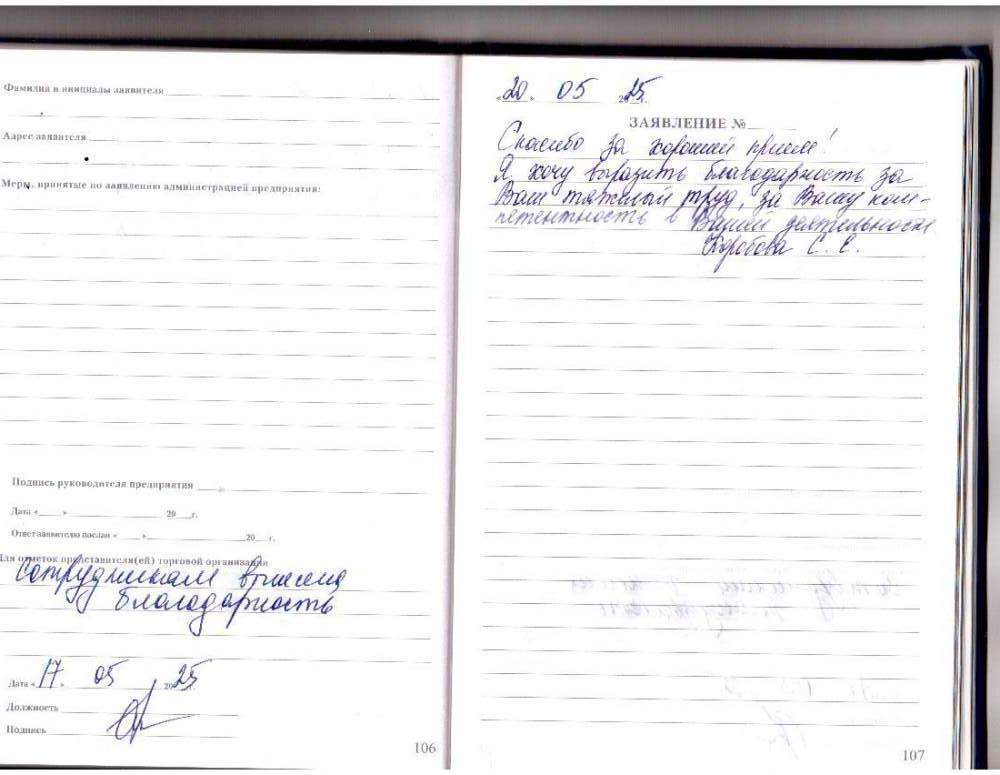 Фамилия и инициалы заявителя
Адрес заявителя
Меры, принятые по заявлению администрацией предприятия:
Подпись руководителя предприятия
Дата « » 20 г.
Ответ заявителю послан « » 20 г.
Для отметок представителя(ей) торговой организации
Сотрудникам вынесена
благодарность
Дата «17» 05 2025
Должность
Подпись
106
«20» 05 2025г.
ЗАЯВЛЕНИЕ №
Спасибо за хороший прием!
Я хочу выразить благодарность за
Ваш тяжелый труд, за Вашу ком-
петентность в Вашей деятельности
Коробова С. Е.
107